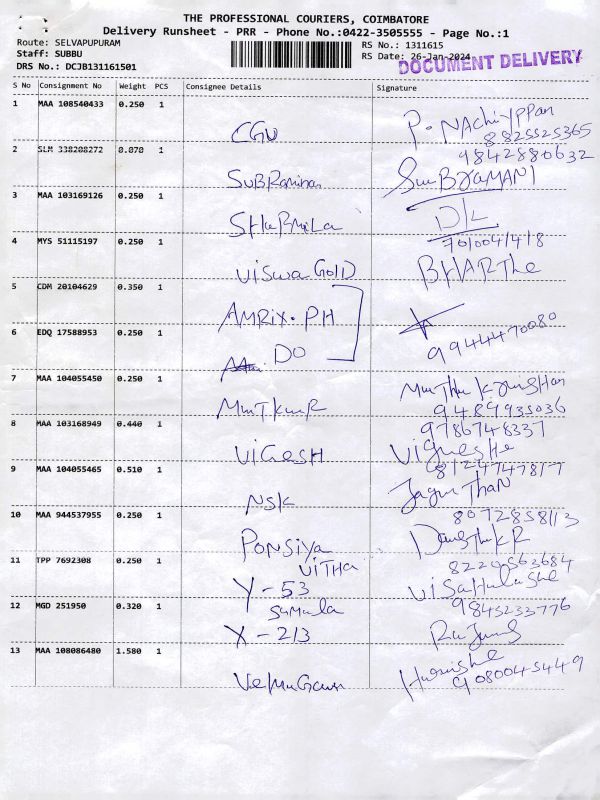 THE PROFESSIONAL COURIERS, COIMBATORE
Delivery Runsheet - PRR - Phone No.:0422-3505555 - Page No.:1
Route: SELVAPUPURAM
Staff: SUBBU
DRS No.: DCJB131161501
RS No.: 1311615
RS Date: 26-Jan-2024
DOCUMENT DELIVERY
S No Consignment No Weight PCS Consignee Details Signature
1 MAA 108540433 0.250 1
CGU P. NAchiyppan
8825525365
2 SLM 338208272 0.070 1
9842880632
SUBRaminan SuuBJAMANI
3 MAA 103169126 0.250 1
SHaBMiLa D/L
4 MYS 51115197 0.250 1
701004/4/8
Viswa GolD BHARThe
5 CDM 20104629 0.350 1
AMRIX. PH
6 EDQ 17588953 0.250 1
9944470080
DO
7 MAA 104055450 0.250 1
9489935036
8 MAA 103168949 0.440 1
9786748337
ViGesH VigneshE
9 MAA 104055465 0.510 1
8124747817
NSK JaganThaN
10 MAA 944537955 0.250 1
8072858113
PONSiya
11 TPP 7692308 0.250 1
ViTHa 8220563684
Y-53
12 MGD 251950 0.320 1
Sumala 9845233776
X-213
13 MAA 108086480 1.580 1
9080045449